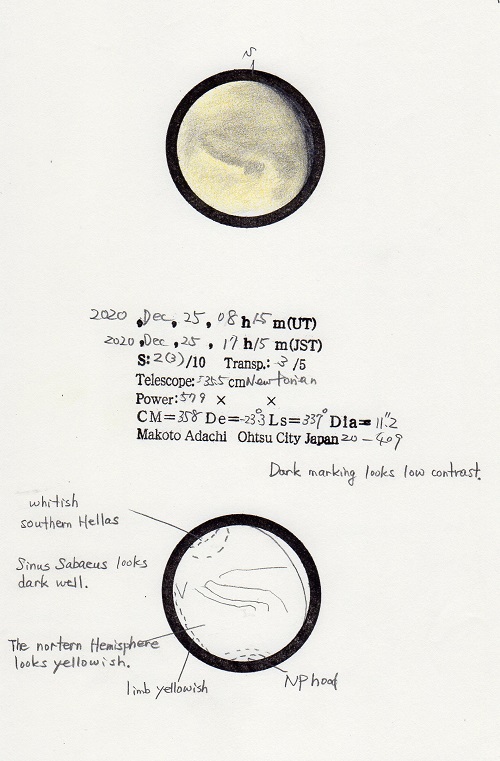 2020, Dec, 25, 08 h 15 m(UT)
2020, Dec, 25, 17 h 15 m(JST)
S: 2(3)/10 Transp.: 3/5
Telescope: 35.5 cm Newtonian
Power: 579 × ×
CM=358 De=-23.3° Ls=337° Dia=11"2
Makoto Adachi Ohtsu City Japan 20-409
Dark marking looks low contrast.
whitish
southern Hellas
Sinus Sabaeus looks
dark well.
The nortern Hemisphere
looks yellowish.
limb yellowish
NP hood